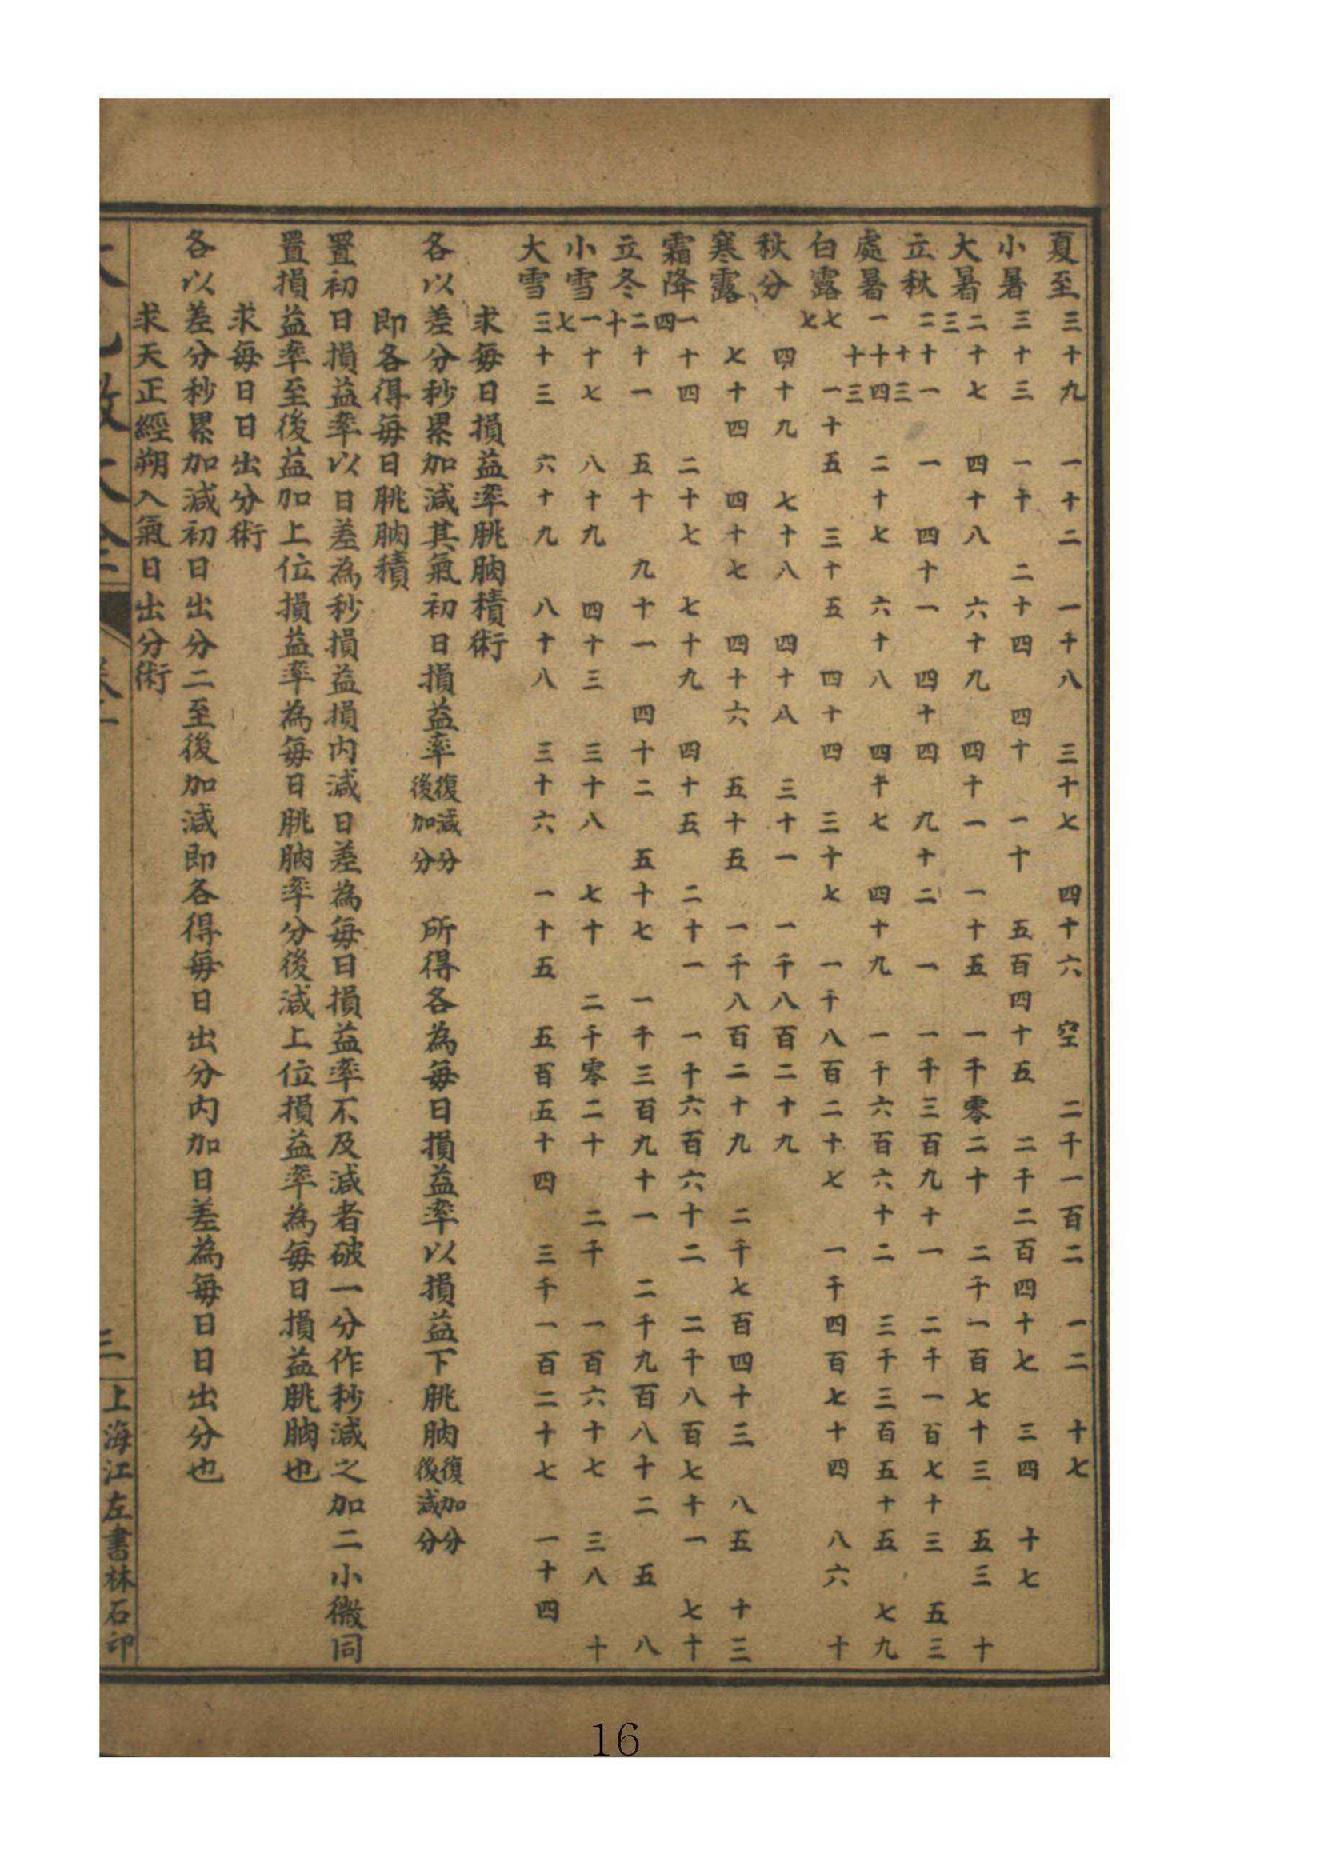 夏至 三十九 一十二 一十八 三十七 四十六 空 二千一百二 一二 十七
小暑 三十三 一十 二十四 四十 一十 五百四十五 二千二百四十七 三四 十七
大暑 二十七 三 四十八 六十九 四十一 一十五 一千零二十 二千一百七十三 五三 十
立秋 二十一 十三 一 四十一 四十四 九十二 一 一千三百九十一 二千一百七十三 五三
處暑 一十四 十三 二十七 六十八 四十七 四十九 一千六百六十二 三千三百五十五 七九
白露 七 七 一十五 三十五 四十四 三十七 一千八百二十七 一千四百七十四 八六 十
秋分 四十九 七十八 四十八 三十一 一千八百二十九
寒露 七十四 四十七 四十六 五十五 一千八百二十九 二千七百四十三 八五 十三
霜降 一十四 四 二十七 七十九 四十五 二十一 一千六百六十二 二千八百七十一 七十
立冬 二十一 十 五十 九十一 四十二 五十七 一千三百九十一 二千九百八十二 五 八
小雪 一十七 七 八十九 四十三 三十八 七十 二千零二十 二千一百六十七 三八 十
大雪 三十三 六十九 八十八 三十六 一十五 五百五十四 三千一百二十七 一十四
求每日損益率朓朒積術
各以差分秒累加減其氣初日損益率復減分後加分所得各為每日損益率以損益下朓朒復加分後減分
即各得每日朓朒積
置初日損益率以日差為秒損益損內減日差為每日損益率不及減者破一分作秒減之加二小微同
置損益率至後益加上位損益率為每日朓朒率分後減上位損益率為每日損益朓朒也
求每日日出分術
各以差分秒累加減初日出分二至後加減即各得每日出分內加日差為每日日出分也
求天正經朔入氣日出分術
三
上海江左書林石印
16